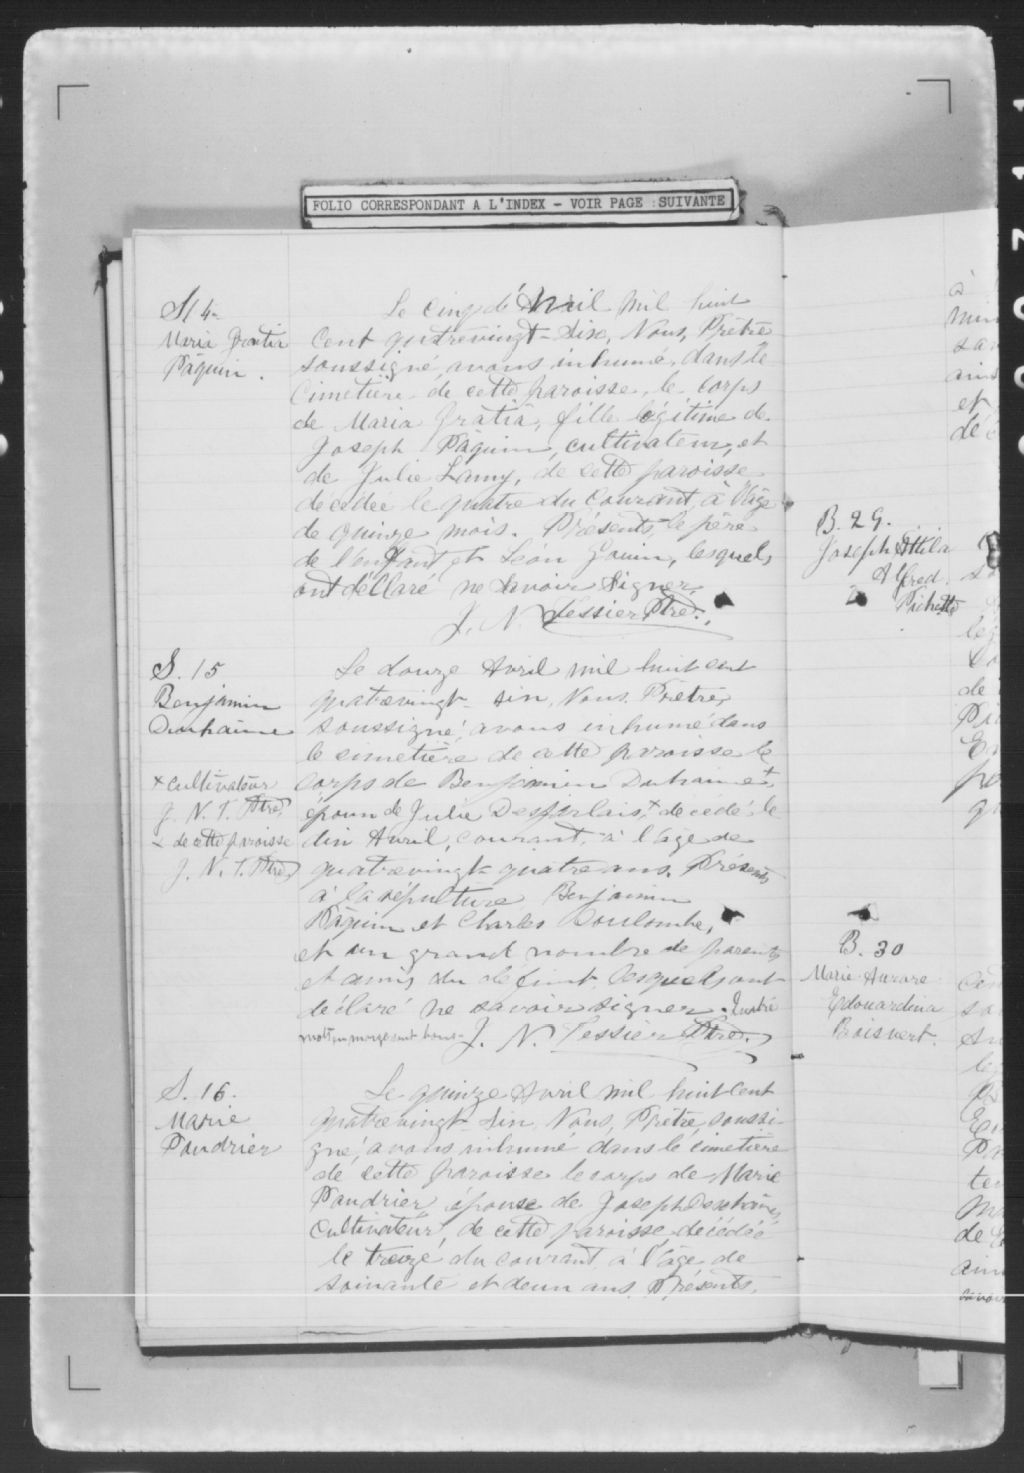 FOLIO CORRESPONDANT A L'INDEX - VOIR PAGE SUIVANTE
S 14-
Maria Gratia
Pâquin.
Le cinq d'Avril mil huit
cent quatrevingt-six, Nous, Prêtre
soussigné, avons inhumé, dans le
Cimetière de cette paroisse, le corps
de Maria Gratia, fille légitime de
Joseph Pâquin, cultivateur, et
de Julie Lamy, de cette paroisse
décédée le quatre du Courant, à l'âge
de quinze mois. Présents, le père
de l'enfant et Léon lesquels
ont déclaré ne savoir signer
J. N. Tessier Ptre.
S. 15
Benjamin
Duhaime
+ cultivateur
J. N. T. Ptre
+ de cette paroisse
J. N. T. Ptre
Le douze Avril mil huit cent
quatrevingt-six, Nous, Prêtre,
soussigné, avons inhumé dans
le cimetière de cette paroisse le
corps de Benjamin Duhaime+,
époux de Julie Desfarlais,+ décédé le
dix Avril, courant, à l'âge de
quatrevingt-quatre ans. Présents
à la sépulture Benjamin
Pâquin et Charles Coulombe,
et un grand nombre de parents
et amis du défunt, lesquels ont
déclaré ne savoir signer.
mots en marge sont bons. J. N. Tessier Ptre.
S. 16.
Marie
Paudrier
Le quinze Avril mil huit cent
quatrevingt-six, Nous, Prêtre, soussi-
gné, avons inhumé dans le cimetière
de cette paroisse le corps de Marie
Paudrier, épouse de Joseph Duhaime,
Cultivateur, de cette paroisse, décédée
le treize du courant, à l'âge de
soixante et deux ans. Présents,
B. 29.
Joseph Attila
Alfred
Pichette
B. 30
Marie Aurore
Edouardina
Boisvert.